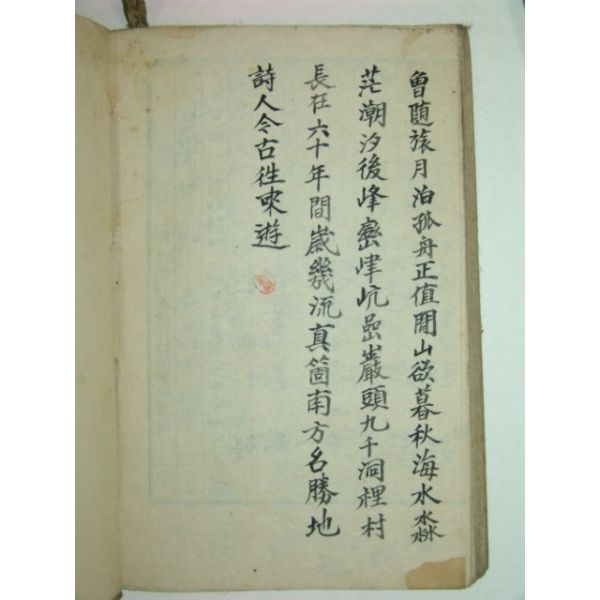 曾隨旅月泊孤舟正值閒山欲暮秋海水淼
茫潮汐後峰巒峍屼嵒巖頭九千洞裡村
長在六十年間歲幾流真箇南方名勝地
詩人今古往來遊